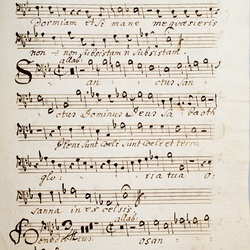 dormiam et si mane me quæsieris
non ÷ non subsistam subsistam.
allab:
San ctus San
ctus Dominus Deus Sa ba oth
Pleni sunt Coeli sunt Coeli et terra
glo ria tua o
sanna in ex celsis.
allab:
Benedictus. osan